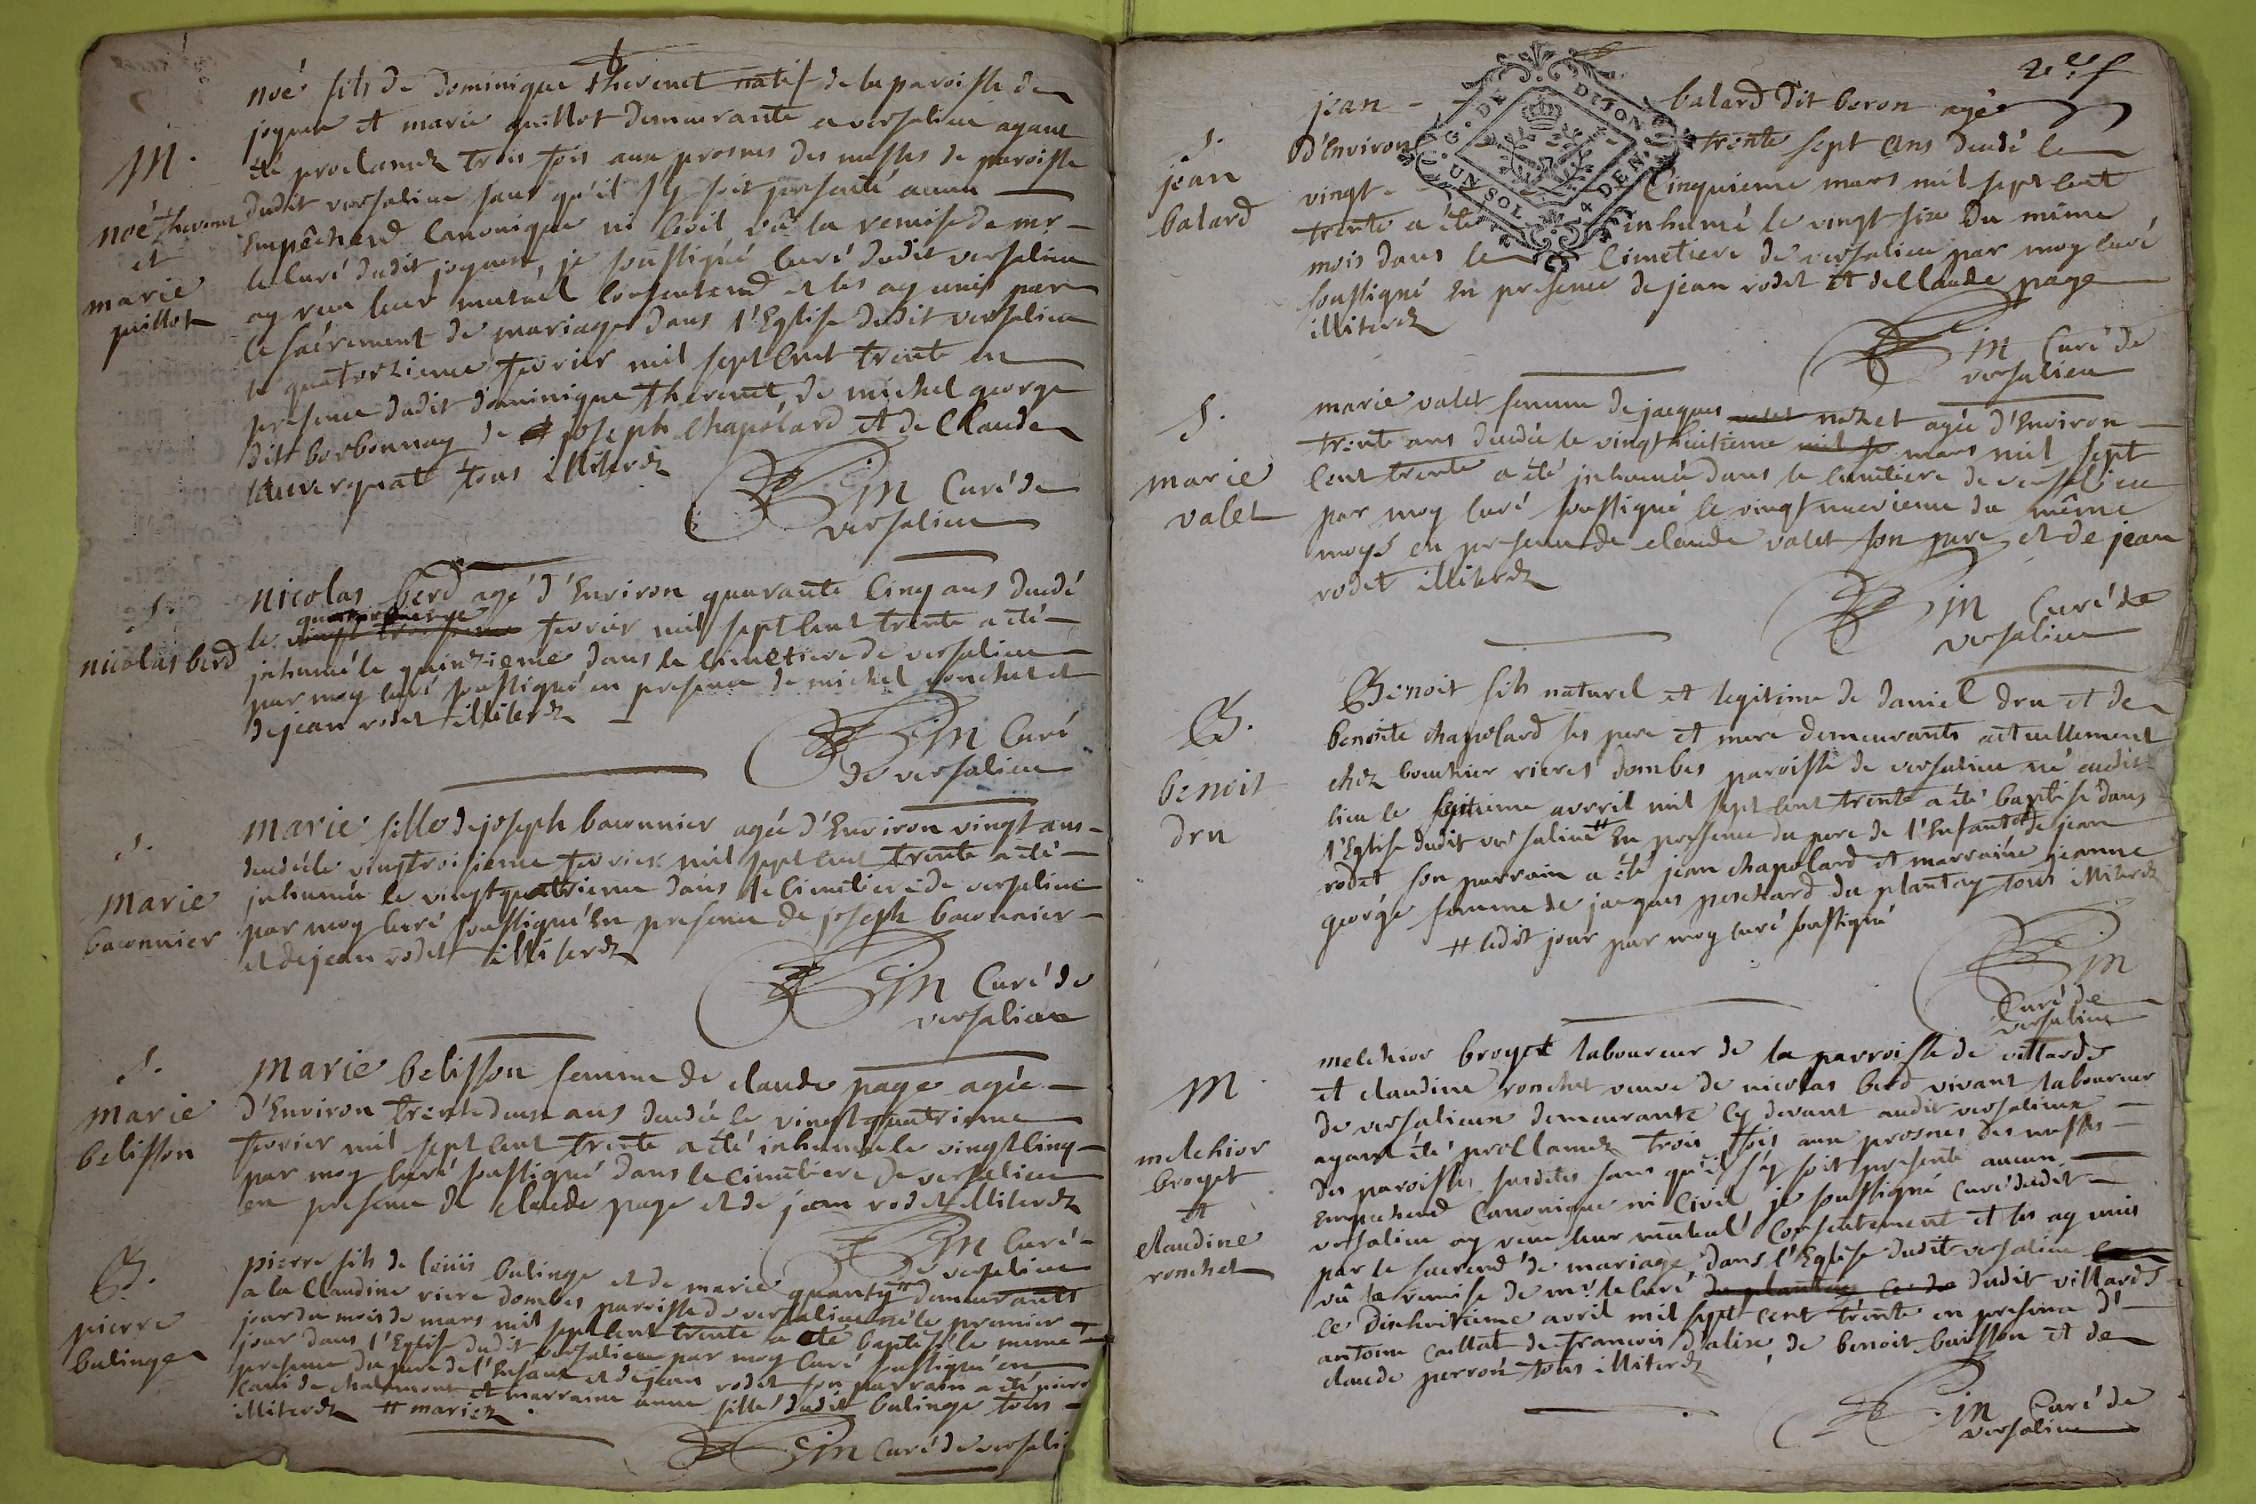 noé fils de dominique thevenet natif de la paroisse de
joyeux et marie guillot demeurante a versalieu ayant
été proclamez trois fois aux prosnes des messes de paroisse
dudit versalieu sans qu'il s'y soit presenté aucun
Empêchemd Canonique ni Civil vû la remise de mr
le Curé dudit joyeux, je soussigné Curé dudit versalieu
ay reçu leur mutuel Consentemd et les ay unis par
le sacrement de mariage dans l'Eglise dudit versalieu
le quatorzieme fevrier mil sept Cent trente en
presence dudit dominique thevenet, de michel george
dit borbonnay de joseph Chapolard et de Claude
tous illiterez
M.
noé thevenet
et
marie
guillot
Curé de
versalieu
nicolas berd agé d'Environ quarante Cinq ans decedé
le quatorzieme fevrier mil sept Cent trente a été
inhumé le quinzieme dans le Cimetiere de versalieu
par moy Curé soussigné en presence de michel ronchet et
de jean rodet illiterez
S.
nicolas berd
Curé
de versalieu
marie fille de joseph baconnier agée d'Environ vingt ans
decedée le vingt troisieme fevrier mil sept Cent trente a été
inhumée le vingt quatrieme dans le Cimetiere de versalieu
par moy Curé soussigné En presence de joseph baconnier
et de jean rodet illiterez
S.
Marie
baconnier
Curé de
versalieu
Marie belisson femme de claude page agée
d'Environ trente deux ans decedée le vingt quatrieme
fevrier mil sept Cent trente a été inhumée le vingt Cinq
par moy Curé soussigné dans le Cimetiere de versalieu
en presence de claude page et de jean rodet illiterez
S.
Marie
belisson
Curé
de versalieu
pierre fils de louis bulinge et de marie quanty # demeurants
a la Claudine riere dombes paroisse de versalieu né le premier
jour du mois de mars mil sept Cent trente a été baptisé le meme
jour dans l'Eglise dudit versalieu par moy Curé soussigné en
presence du pere de l'Enfant et de jean rodet son parrain a été pierre
de chalamont et marraine anne fille dudit bulinge tous
illiterez # mariez
B.
pierre
bulinge
Curé de versalieu
2e f
jean balard dit beron agé
d'Environ trente sept ans decedé le
vingt Cinquieme mars mil sept Cent
trente a été inhumé le vingt six du même
mois dans le Cimetiere de versalieu par moy Curé
soussigné En presence de jean rodet et de Claude page
illiterez
G. DE DIJON
UN SOL 4 DEN.
S.
jean
balard
Curé de
versalieu
marie valet femme de jacques nozet agée d'Environ
trente ans decedée le vingt huitieme mars mil sept
Cent trente a été inhumée dans le Cimetiere de versalieu
par moy Curé soussigné le vingt neuvieme du même
moys en presence de claude valet son pere et de jean
rodet illiterez
S.
marie
valet
Curé de
versalieu
Benoit fils naturel et legitime de daniel dru et de
benoite chapolard ses pere et mere demeurants actuellement
chez bouthier rieres dombes paroisse de versalieu né audit
lieu le septieme avvril mil sept Cent trente a été baptisé dans
l'Eglise dudit versalieu # En presence du pere de l'Enfant et de jean
rodet son parrain a été jean chapolard et marraine jeanne
george femme de jacques perchard du plantay tous illiterez
# ledit jour par moy Curé soussigné
B.
benoit
dru
Curé de
versalieu
melchior broyet laboureur de la parroisse de villards
et claudine ronchet veuve de nicolas berd vivant laboureur
de versalieux demeurante cy devant audit versalieux
ayant été procllamez trois fois aux prosnes des messes
des paroisses susdites sans qu'il s'y soit presenté aucun
Empechemd Canonique ni Civil je soussigné Curé dudit
versalieu ay reçu leur mutuel Consentement et les ay unis
par le sacremd de mariage dans l'Eglise dudit versalieu
vû la remise de mr le Curé dudit villards
ce dixhuitieme avril mil sept cent trente en presence d'
antoine caillat de francois d'alix de benoit buisson et de
claude perron tous illiterez
M
melchior
broyet
et
claudine
ronchet
Curé de
versalieu